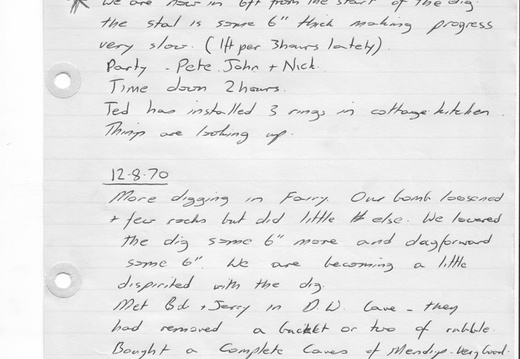 We are now in 6ft from the start of the dig.
the stal is some 6" thick making progress
very slow. (1ft per 3hours lately).
Party - Pete, John + Nick.
Time down 2hours.
Ted has installed 3 rings in cottage kitchen.
Things are looking up.
12-8-70
More digging in Our bomb loosened
+ few rocks but did little else. We lowered
the dig some 6" more and dug forward
some 6". We are becoming a little
dispirited with the dig.
Met Bd + Jerry in D.W. Cave - they
had removed a bucket or two of rubble.
Bought a Complete Caves of Mendip. Very Good.